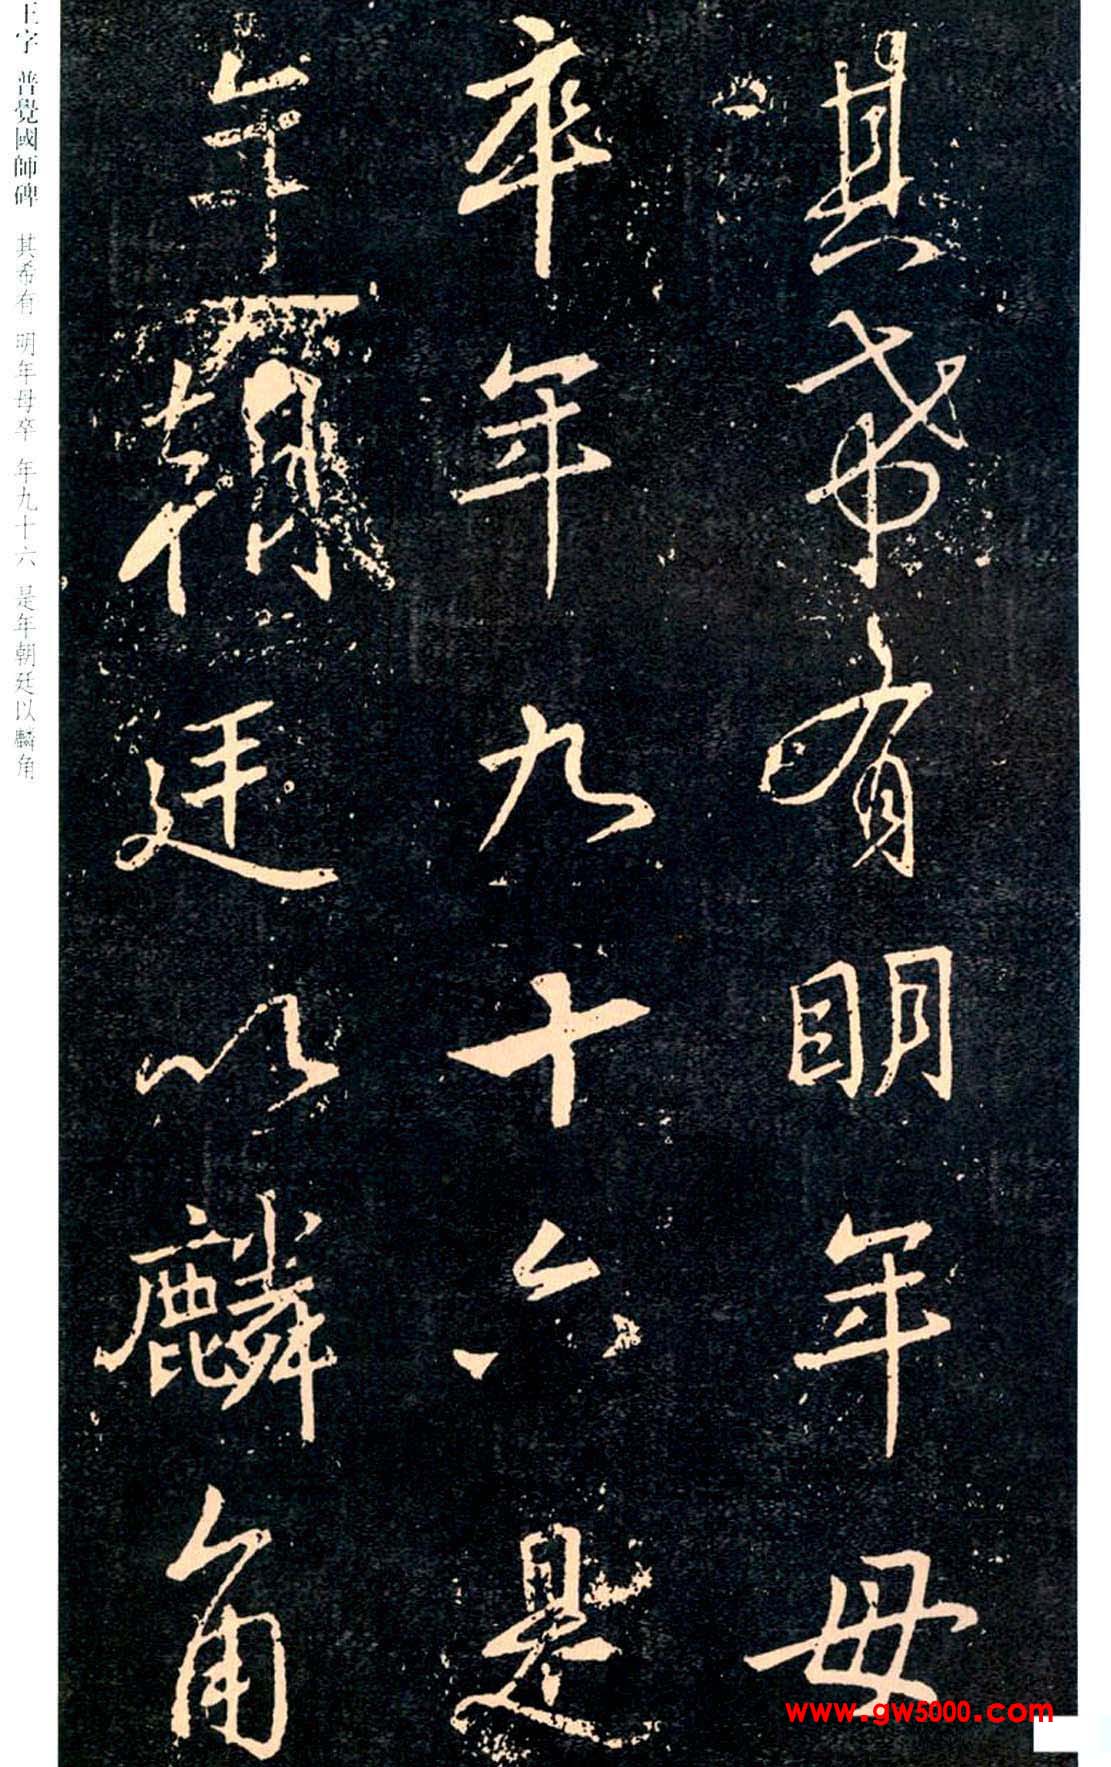 其希有明年母
卒年九十六是
年朝廷以麟角
王字 普覺國師碑 其希有 明年母卒 年九十六 是年朝廷以麟角
www.gw5000.com